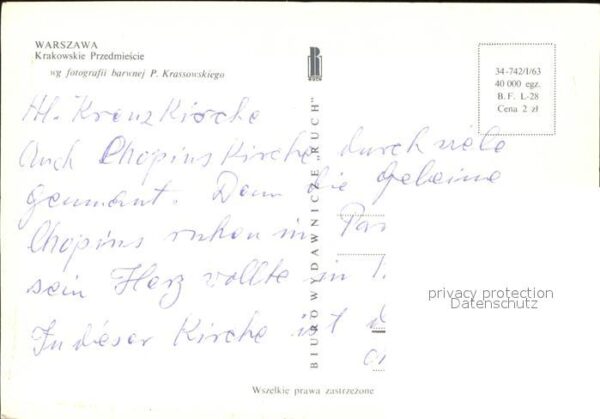 WARSZAWA
Krakowskie Przedmieście
wg fotografii barwnej P. Krassowskiego
RUCH
34-742/I/63
40 000 egz.
B. F. L-28
Cena 2 zł
BIURO WYDAWNICZE „RUCH"
Hl. Kreuz Kirche
Auch Chopins Kirche durch viele
genannt. Denn die Gebeine
Chopins ruhen in Par
sein Herz wollte in
In dieser Kirche ist d
privacy protection
Datenschutz
Wszelkie prawa zastrzeżone